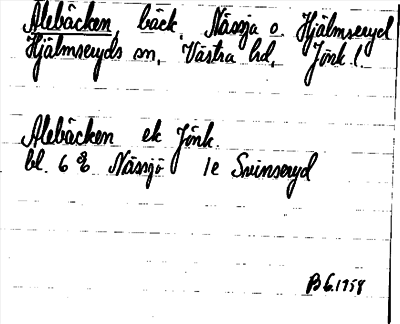 Alebäcken, bäck. Nässja o. Hjälmseryd
Hjälmseryds sn, Västra hd, Jönk. l.
Alebäcken ek Jönk.
bl. 6 Nässjö 1e Svinseryd
B G. 1958